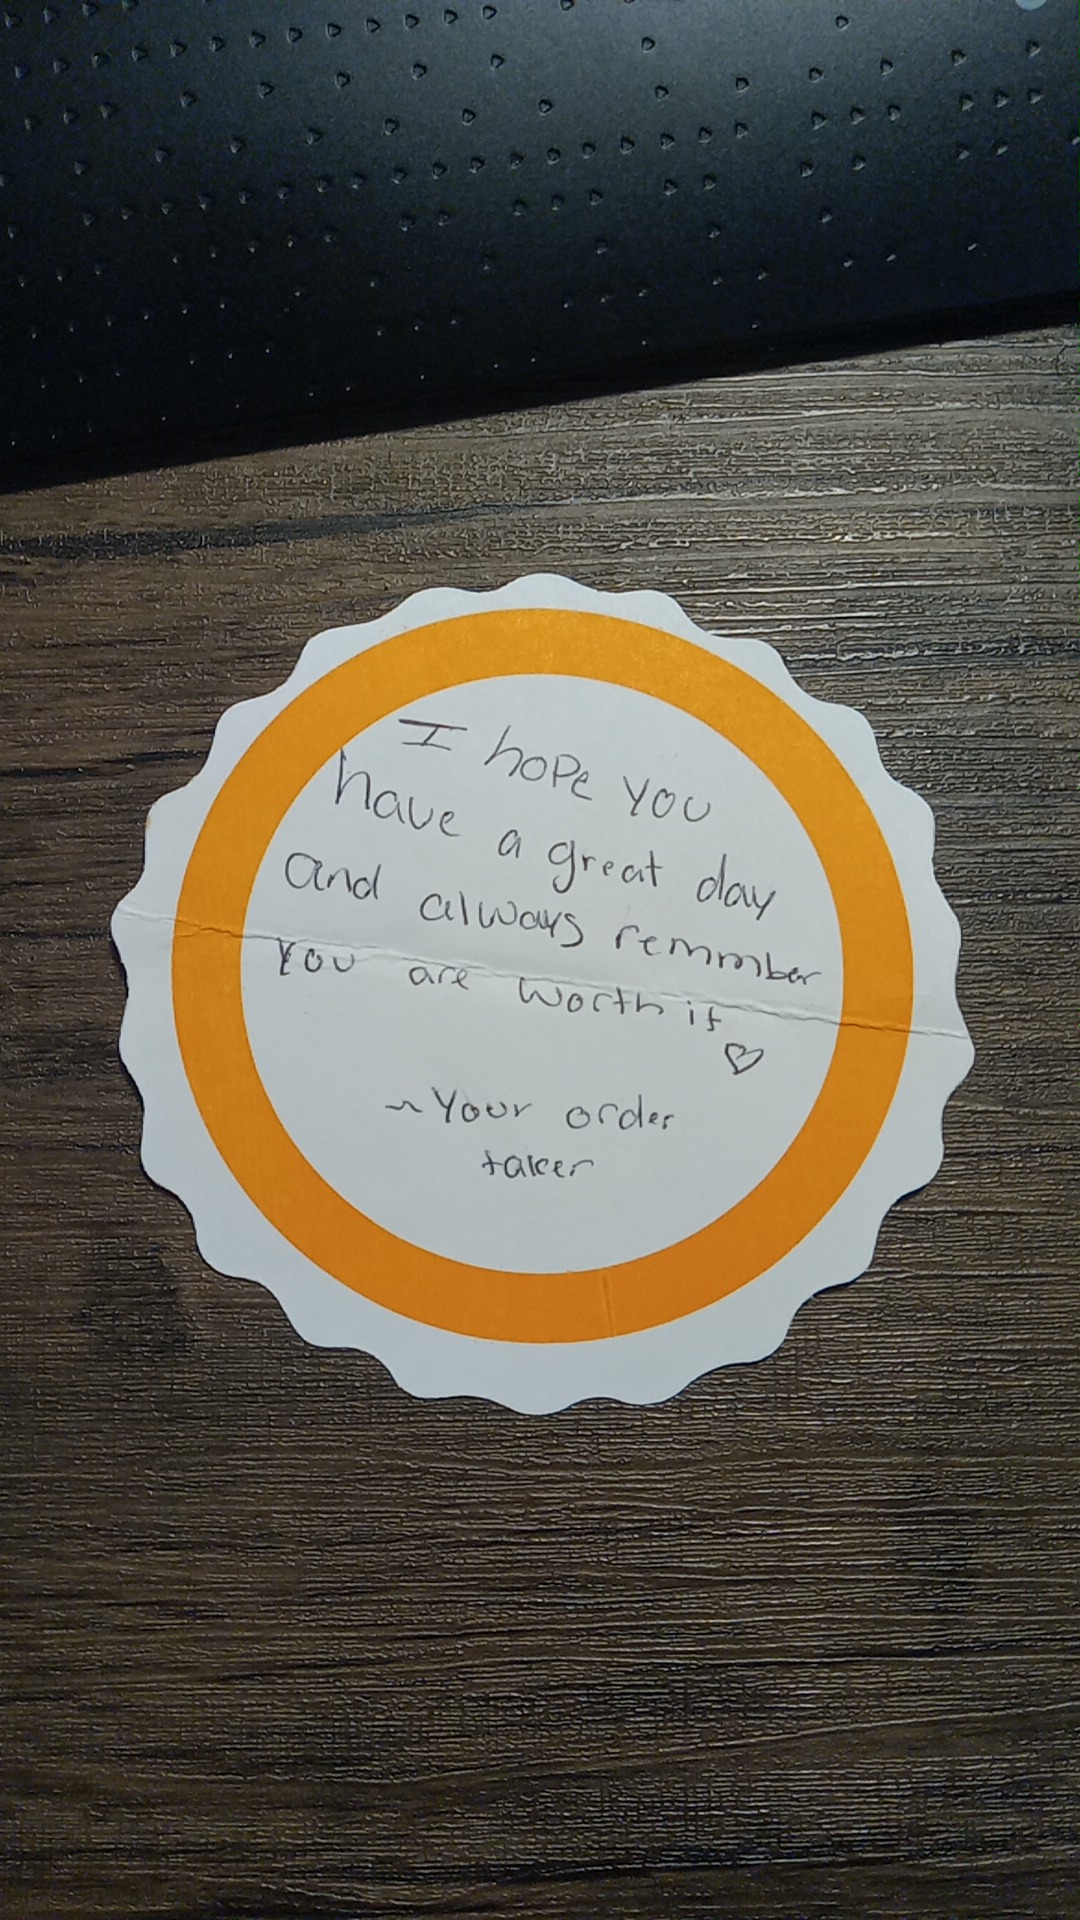 I hope you
have a great day
and always remmber
you are worth it
♡
~Your order
taker